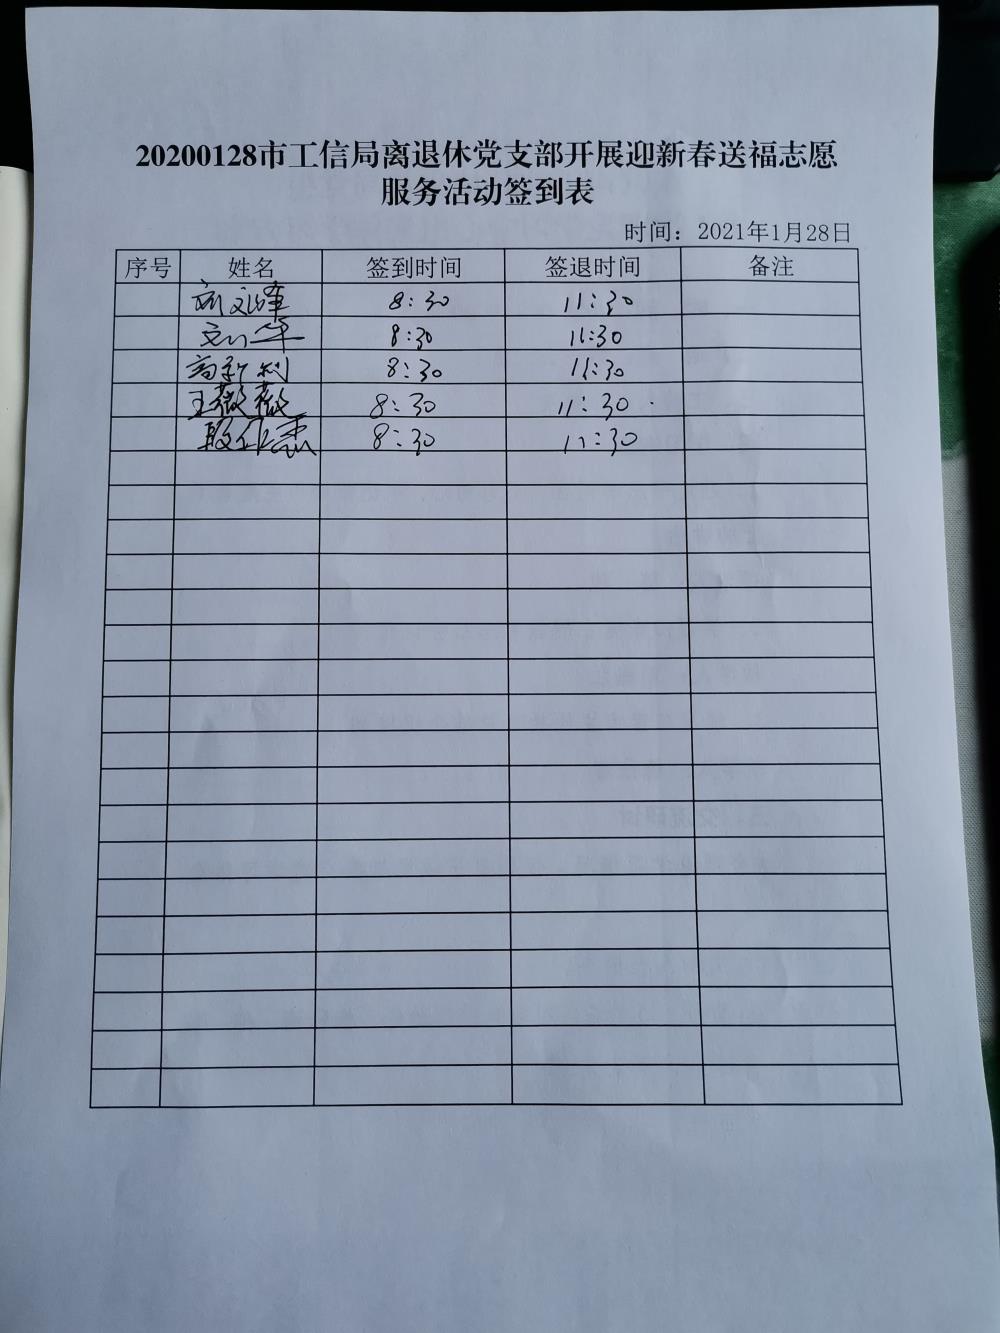 20200128市工信局离退休党支部开展迎新春送福志愿
服务活动签到表
时间：2021年1月28日
序号 姓名 签到时间 签退时间 备注
8:30 11:30
8:30 11:30
高新利 8:30 11:30
王薇薇 8:30 11:30
8:30 11:30